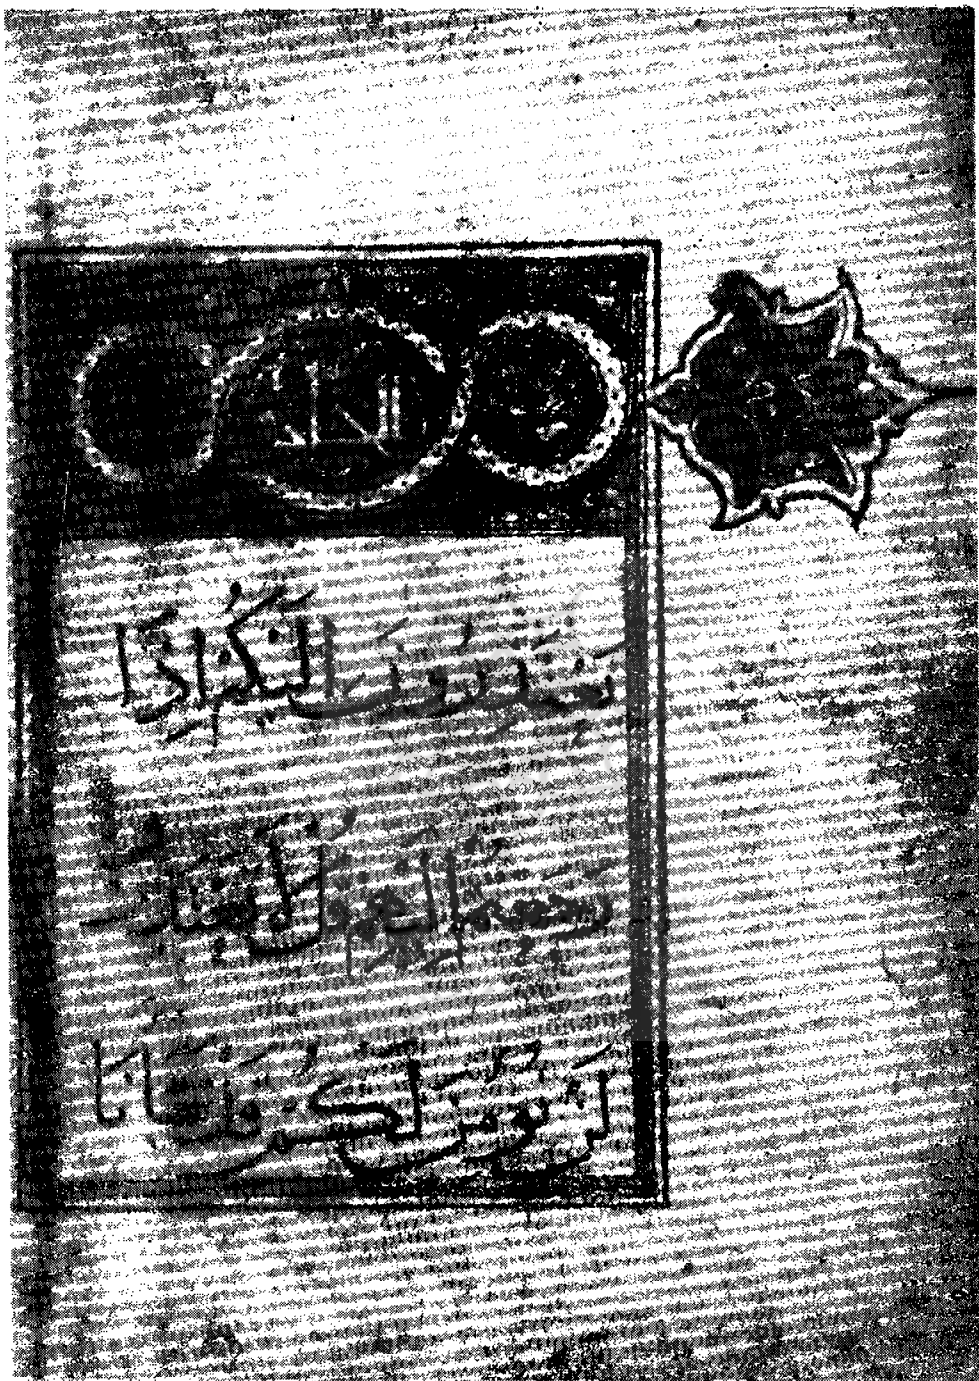 يَعْتَذِرُونَ إِلَيْكُمْ إِذَا
رَجَعْتُمْ إِلَيْهِمْ قُل لَّا تَعْتَذِرُوا
لَن نُّؤْمِنَ لَكُمْ قَدْ نَبَّأَنَا